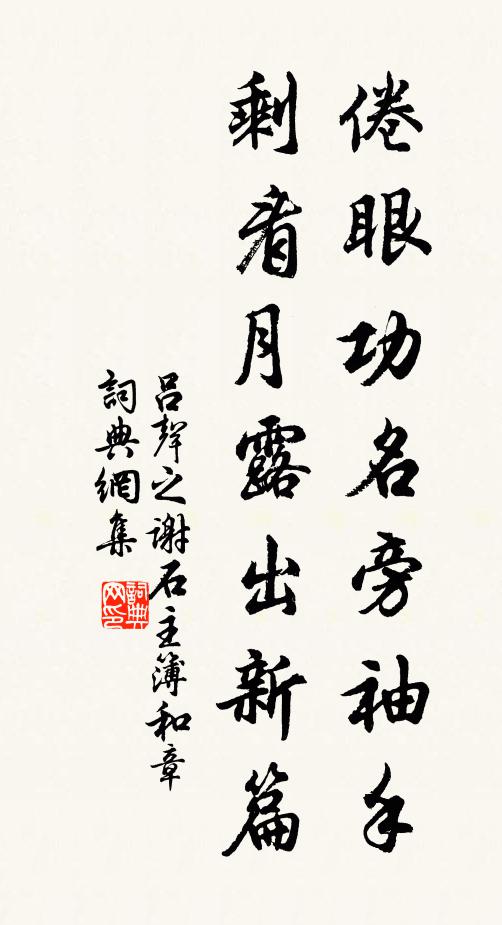 倦眼功名旁袖手
剩看月露出新篇
呂聲之谢石主簿和章
詞典網集
詞典网印